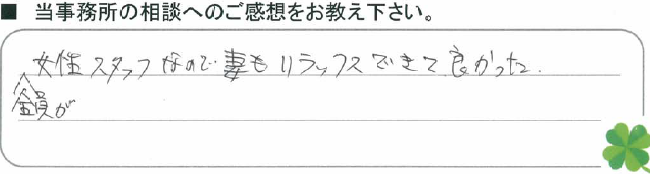 ■ 当事務所の相談へのご感想をお教え下さい。
女性スタッフなので妻もリラックスできて良かった.
全員が